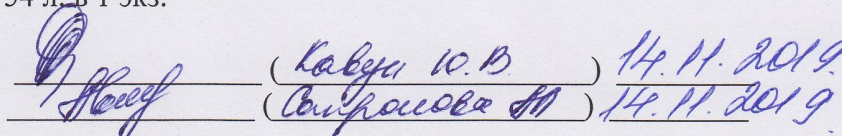 94 л. в 1 экз.
(Кавун Ю.В.) 14.11.2019.
(Сапронова) 14.11.2019.